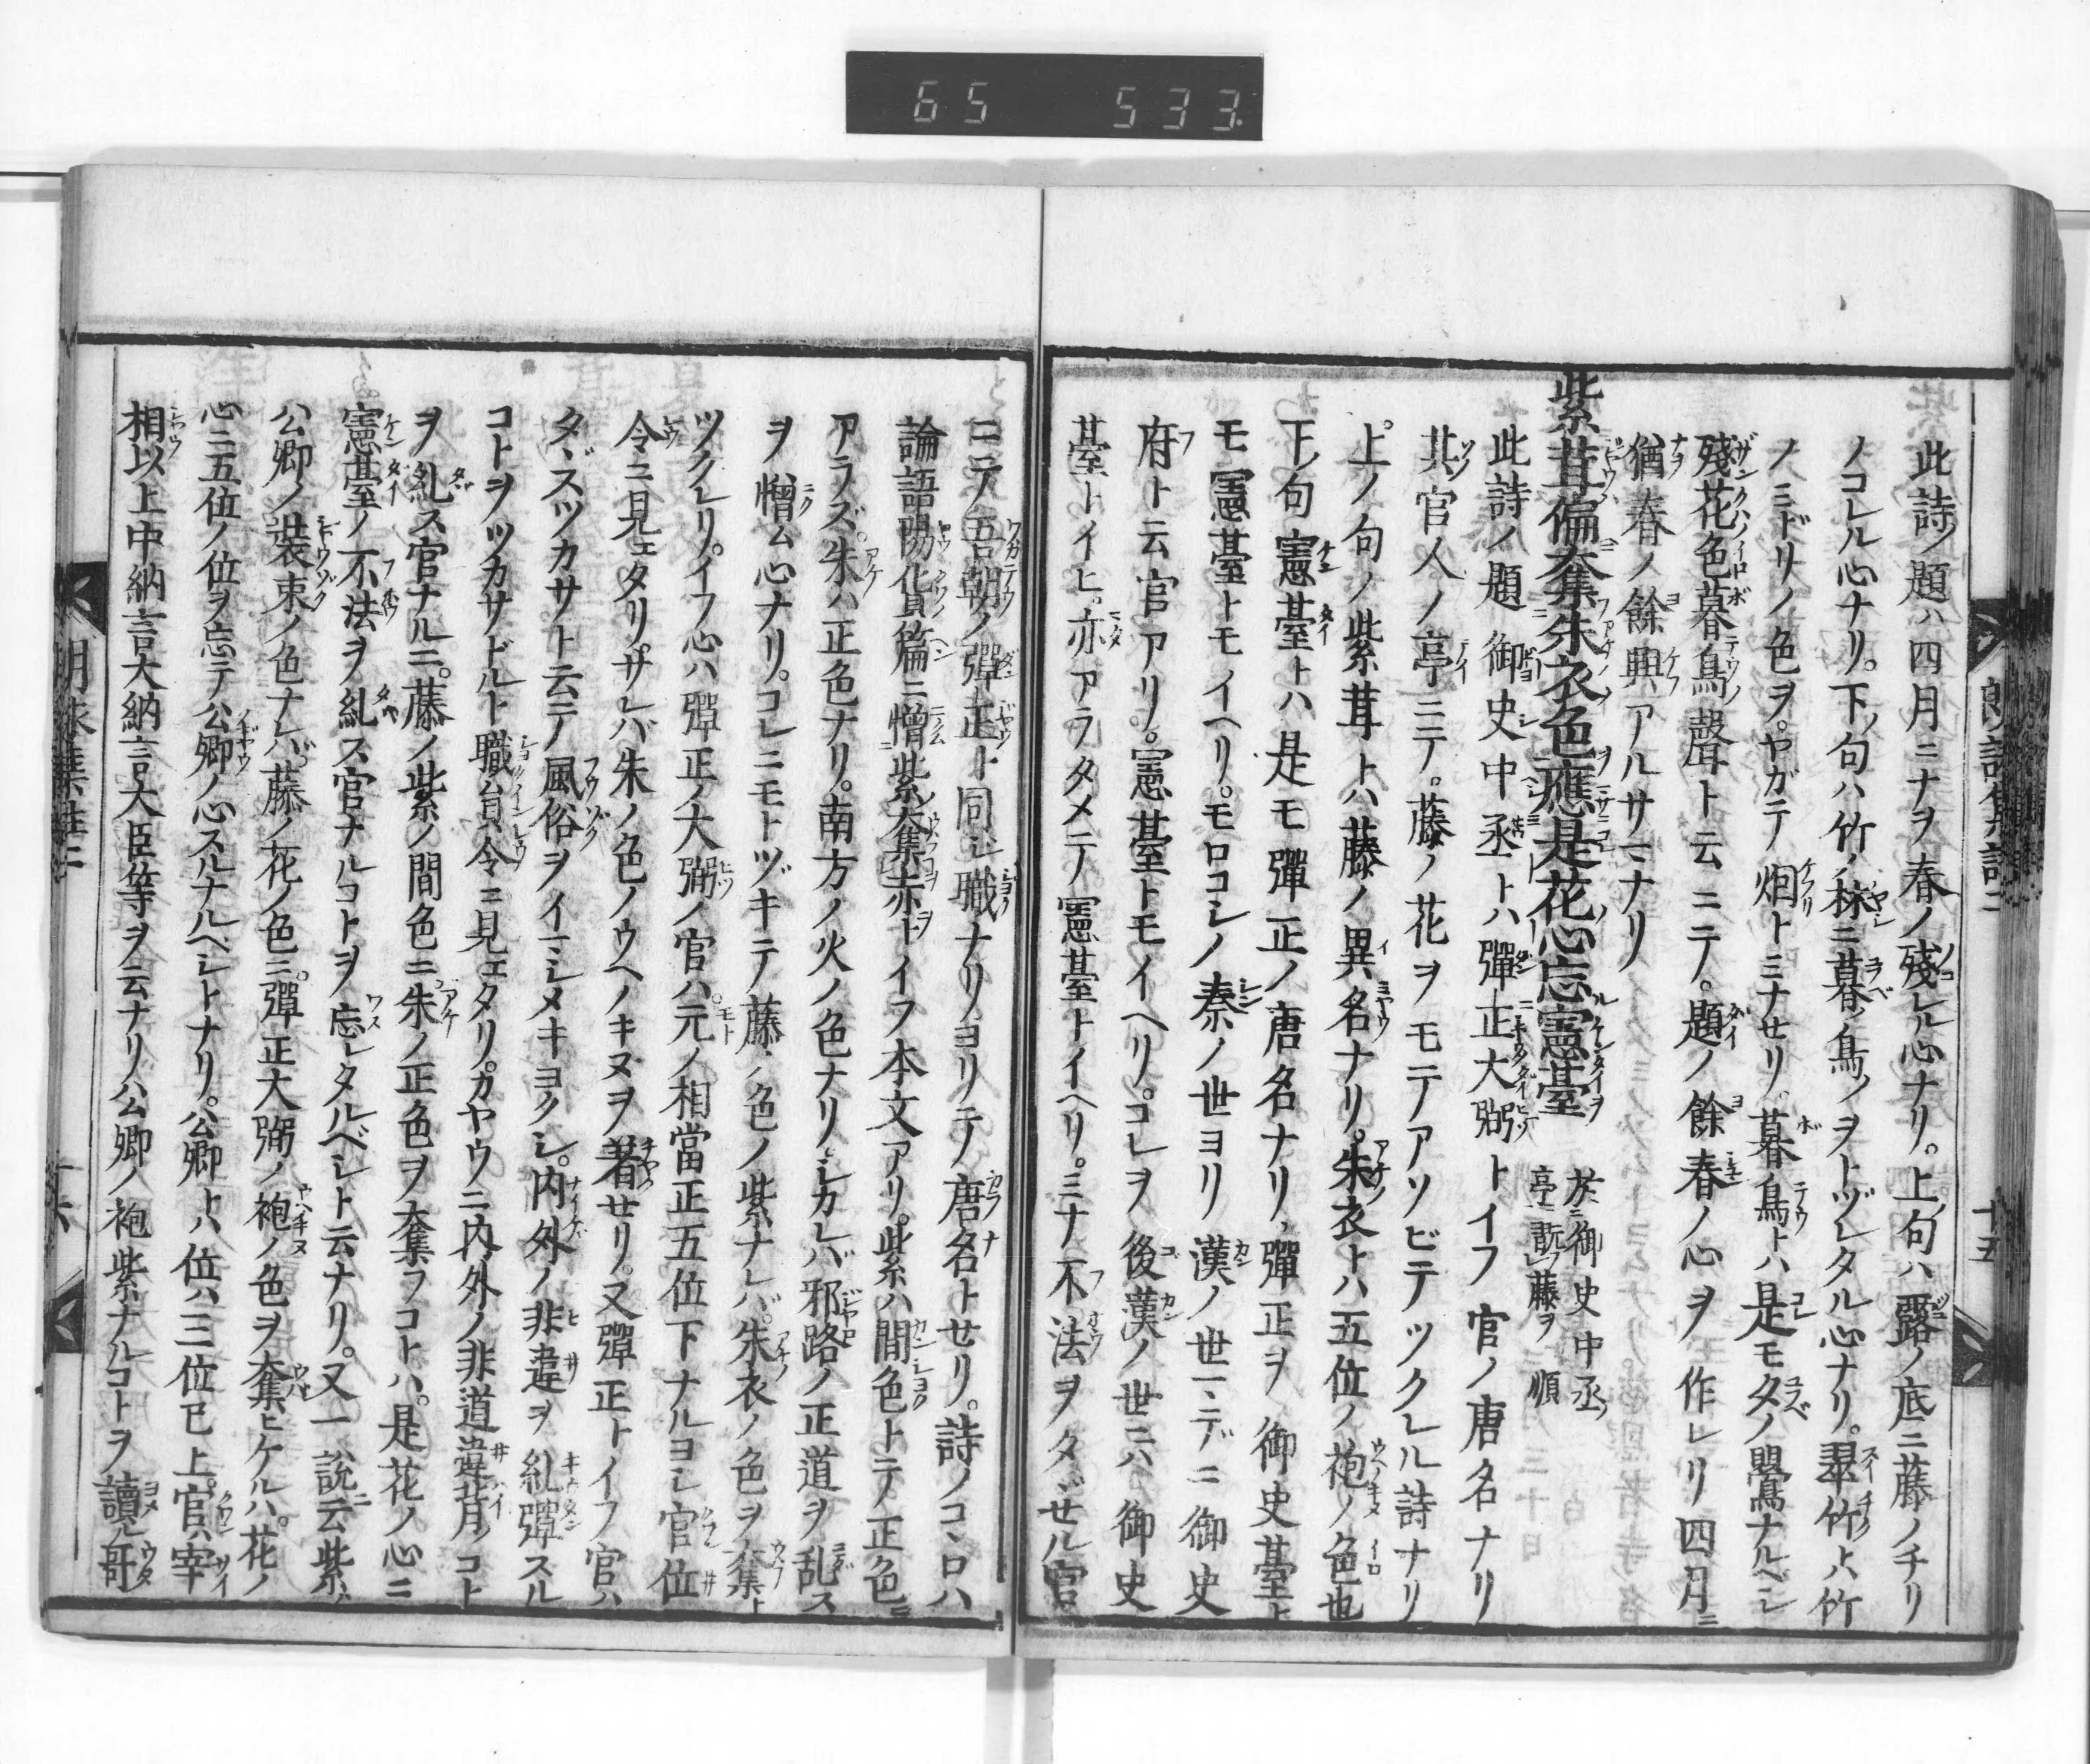 65 533
此詩ノ題ハ四月ニナヲ春ノ残レル心ナリ。上句ハ露ノ底ニ藤ノチリ
ノコレル心ナリ。下ノ句ハ竹ノ林ニ暮ノ鳥ノヲトヅレタル心ナリ。翠竹トハ竹
ノミドリノ色ヲ。ヤガテ烟トミナセリ。暮鳥トハ是モタノ鶯ナルベシ
殘花色暮鳥聲ト云ニテ。題ノ餘春ノ心ヲ作レリ四月ニ
猶春ノ餘興アルサマナリ
紫茸偏奪朱衣色應是花心忘憲臺 於御史中丞亭翫藤ヲ 順
此詩ノ題御史中丞トハ彈正大弼トイフ官ノ唐名ナリ
其官人ノ亭ニテ。藤ノ花ヲモテアソビテツクレル詩ナリ
上ノ句ノ紫茸トハ藤ノ異名ナリ。朱衣トハ五位ノ袍ノ色也
下ノ句憲臺トハ是モ彈正ノ唐名ナリ。彈正ヲ御史臺ト
モ憲臺トモイヘリ。モロコシノ秦ノ世ヨリ漢ノ世マデニ御史
府ト云官アリ。憲臺トモイヘリ。コレヲ後漢ノ世ニハ御史
臺トイヒ。亦アラタメテ憲臺トイヘリ。ミナ不法ヲタヾセル官
ニテ吾朝ノ彈正ト同シ職ナリ。ヨリテ唐名トセリ。詩ノコヽロハ
論語陽貨篇ニ憎紫奪赤トイフ本文アリ。紫ハ間色トテ正色ニ
アラズ。朱ハ正色ナリ。南方ノ火ノ色ナリ。シカレバ邪路ノ正道ヲ乱ス
ヲ憎ム心ナリ。コレニモトヅキテ藤ノ色ノ紫ナレバ。朱衣ノ色ヲ奪ト
ツクレリ。イフ心ハ彈正ノ大弼ノ官ハ。元ノ相當正五位下ナルヨシ官位
令ニ見エタリ。サレバ朱ノ色ノウヘノキヌヲ著セリ。又彈正トイフ官ハ
タヾズツカサト云テ風俗ヲイマシメキヨクシ。内外ノ非違ヲ糺彈スル
コトヲツカサドルト職員令ニ見エタリ。カヤウニ内外ノ非道違背ノコト
ヲ糺ス官ナルニ。藤ノ紫ノ間色ニ朱ノ正色ヲ奪フコトハ。是花ノ心ニ
憲臺ノ不法ヲ糺ス官ナルコトヲ忘レタルベシト云ナリ。又一説云紫ハ
公卿ノ裝束ノ色ナレバ。藤ノ花ノ色ニ。彈正大弼ノ袍ノ色ヲ奪ヒケルハ。花ノ
心ニ五位ノ位ヲ忘テ公卿ノ心スルナルベシトナリ。公卿トハ位ハ三位已上。官ハ宰
相以上中納言大納言大臣等ヲ云ナリ公卿ノ袍紫ナルコトヲ讀ル哥